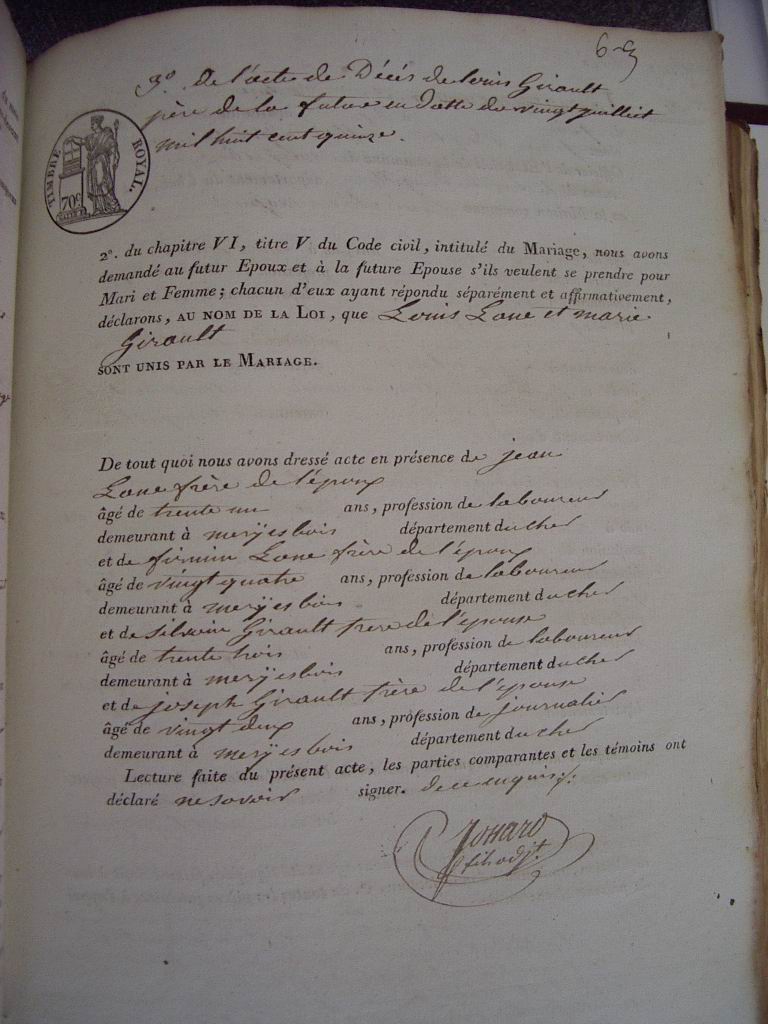 3º. de l'acte de Décès de louis Girault
père de la future en datte du vingt juillet
mil huit cent quinze.
TIMBRE ROYAL.
70c
2º. du chapitre VI, titre V du Code civil, intitulé du Mariage, nous avons
demandé au futur Epoux et à la future Epouse s'ils veulent se prendre pour
Mari et Femme; chacun d'eux ayant répondu séparément et affirmativement,
déclarons, AU NOM DE LA LOI, que Louis Lane et marie
Girault
SONT UNIS PAR LE MARIAGE.
De tout quoi nous avons dressé acte en présence de jean
Lane frère de l'époux
âgé de trente un ans, profession de laboureur
demeurant à merÿ es bois département du cher
et de firmin Lane frère de l'époux
âgé de vingt quatre ans, profession de laboureur
demeurant à merÿ es bois département du cher
et de silvain Girault frere de l'epouse
âgé de trente trois ans, profession de laboureur
demeurant à merÿ es bois département du cher
et de joseph Girault frère de l'epouse
âgé de vingt deux ans, profession de journalier
demeurant à merÿ es bois département du cher
Lecture faite du présent acte, les parties comparantes et les témoins ont
déclaré ne savoir signer. de ce enquis
fils adjt.